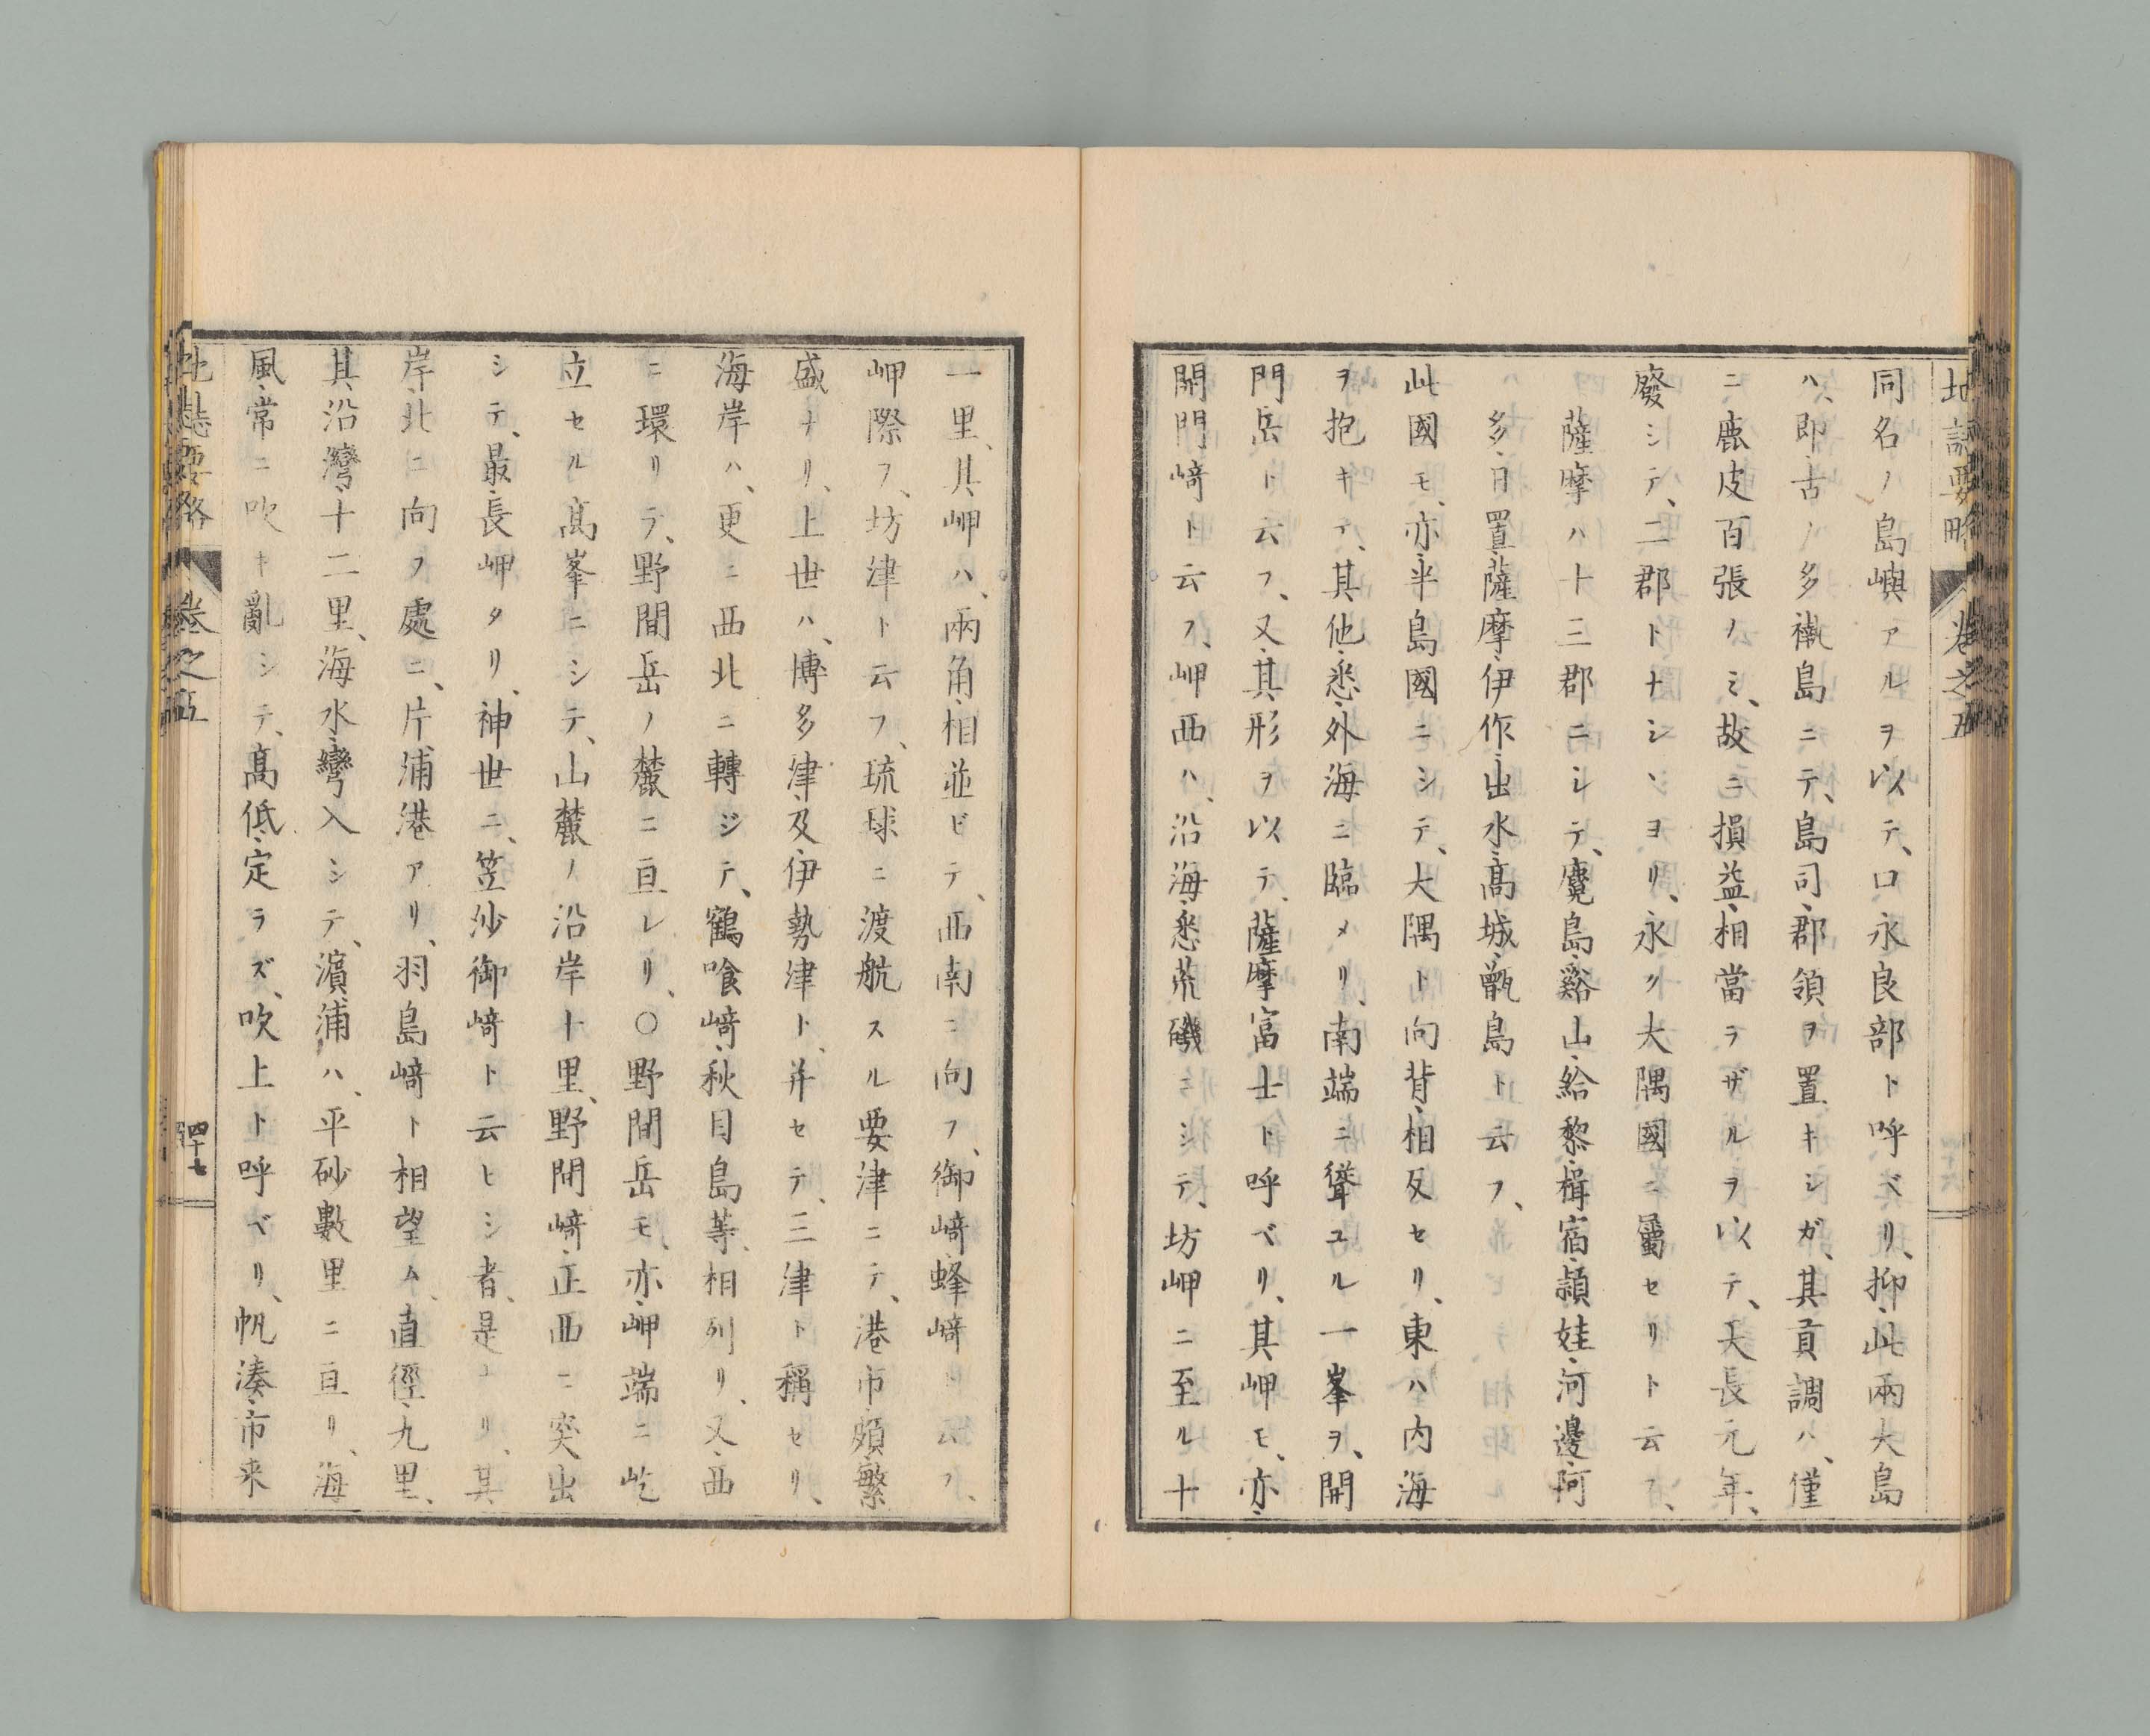 地誌要略 卷之五
同名ノ島嶼アルヲ以テ、口永良部ト呼ベリ、抑、此兩大島
ハ、即、古ノ多褹島ニテ、島司、郡領ヲ置キシガ、其貢調ハ、僅
ニ鹿皮百張ノミ、故ニ損益、相當ラザルヲ以テ、天長元年、
廢シテ、二郡トナシヽヨリ、永ク大隅國ニ屬セリト云フ、
薩摩ハ十三郡ニシテ、麑島、谿山、給黎、揖宿、頴娃、河邊、阿
多、日置、薩摩、伊作、出水、高城、甑島ト云フ、
此國モ、亦、半島國ニシテ、大隅ト向背、相反セリ、東ハ内海
ヲ抱キテ、其他、悉、外海ニ臨メリ、南端ニ聳ユル一峯ヲ、開
門岳ト云フ、又、其形ヲ以テ、薩摩富士ト呼ベリ、其岬モ、亦、
開門﨑ト云フ、岬西ハ、沿海、悉、荒磯ニシテ、坊岬ニ至ル十
一里、其岬ハ、兩角、相並ビテ、西南ニ向フ、御﨑蜂﨑ト云フ、
岬際フ、坊津ト云フ、琉球ニ渡航スル要津ニテ、港市、頗、繁
盛ナリ、上世ハ、博多津、及、伊勢津ト、并セテ、三津ト稱セリ、
海岸ハ、更ニ西北ニ轉ジテ、鶴喰﨑、秋目島等、相列リ、又、西
ニ環リテ、野間岳ノ麓ニ亘レリ、〇野間岳モ、亦、岬端ニ屹
立セル高峯ニシテ、山麓ノ沿岸十里、野間﨑、正西ニ突出
シテ、最、長岬タリ、神世ニ、笠沙御﨑ト云ヒシ者、是ナリ、其
岸、北ニ向フ處ニ、片浦港アリ、羽島﨑ト相望ム、直徑、九里、
其沿灣、十二里、海水、彎入シテ、濵浦ハ、平砂數里ニ亘リ、海
風、常ニ吹キ亂シテ、高低、定ラズ、吹上ト呼ベリ、帆湊、市来
地誌要略 卷之五 四十七